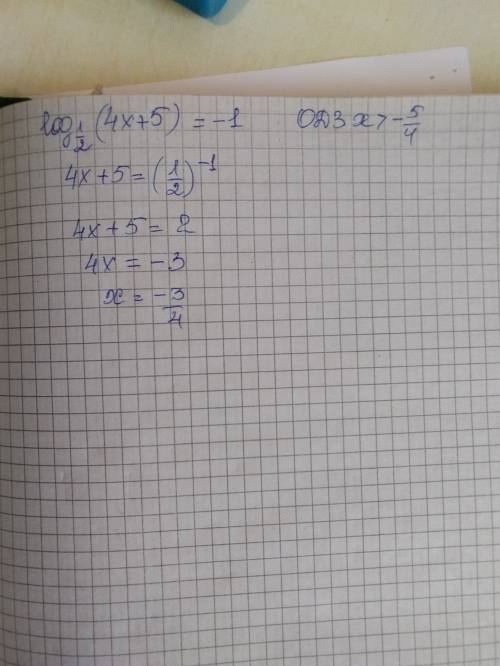 log_{1/2}(4x+5) = -1     ОДЗ x > -5/4
4x+5 = (1/2)^{-1}
4x+5 = 2
4x = -3
x = -3/4